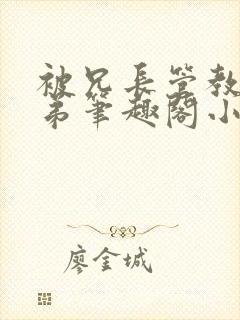 被兄長管教
弟筆趣閣小
廖金城